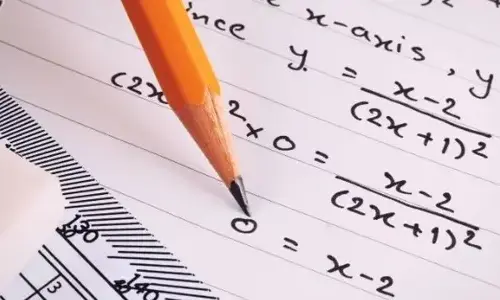 x-axis, y
y = x-2/(2x+1)²
(2x ² x 0 = x-2/(2x+1)²
0 = x-2
130
140
3